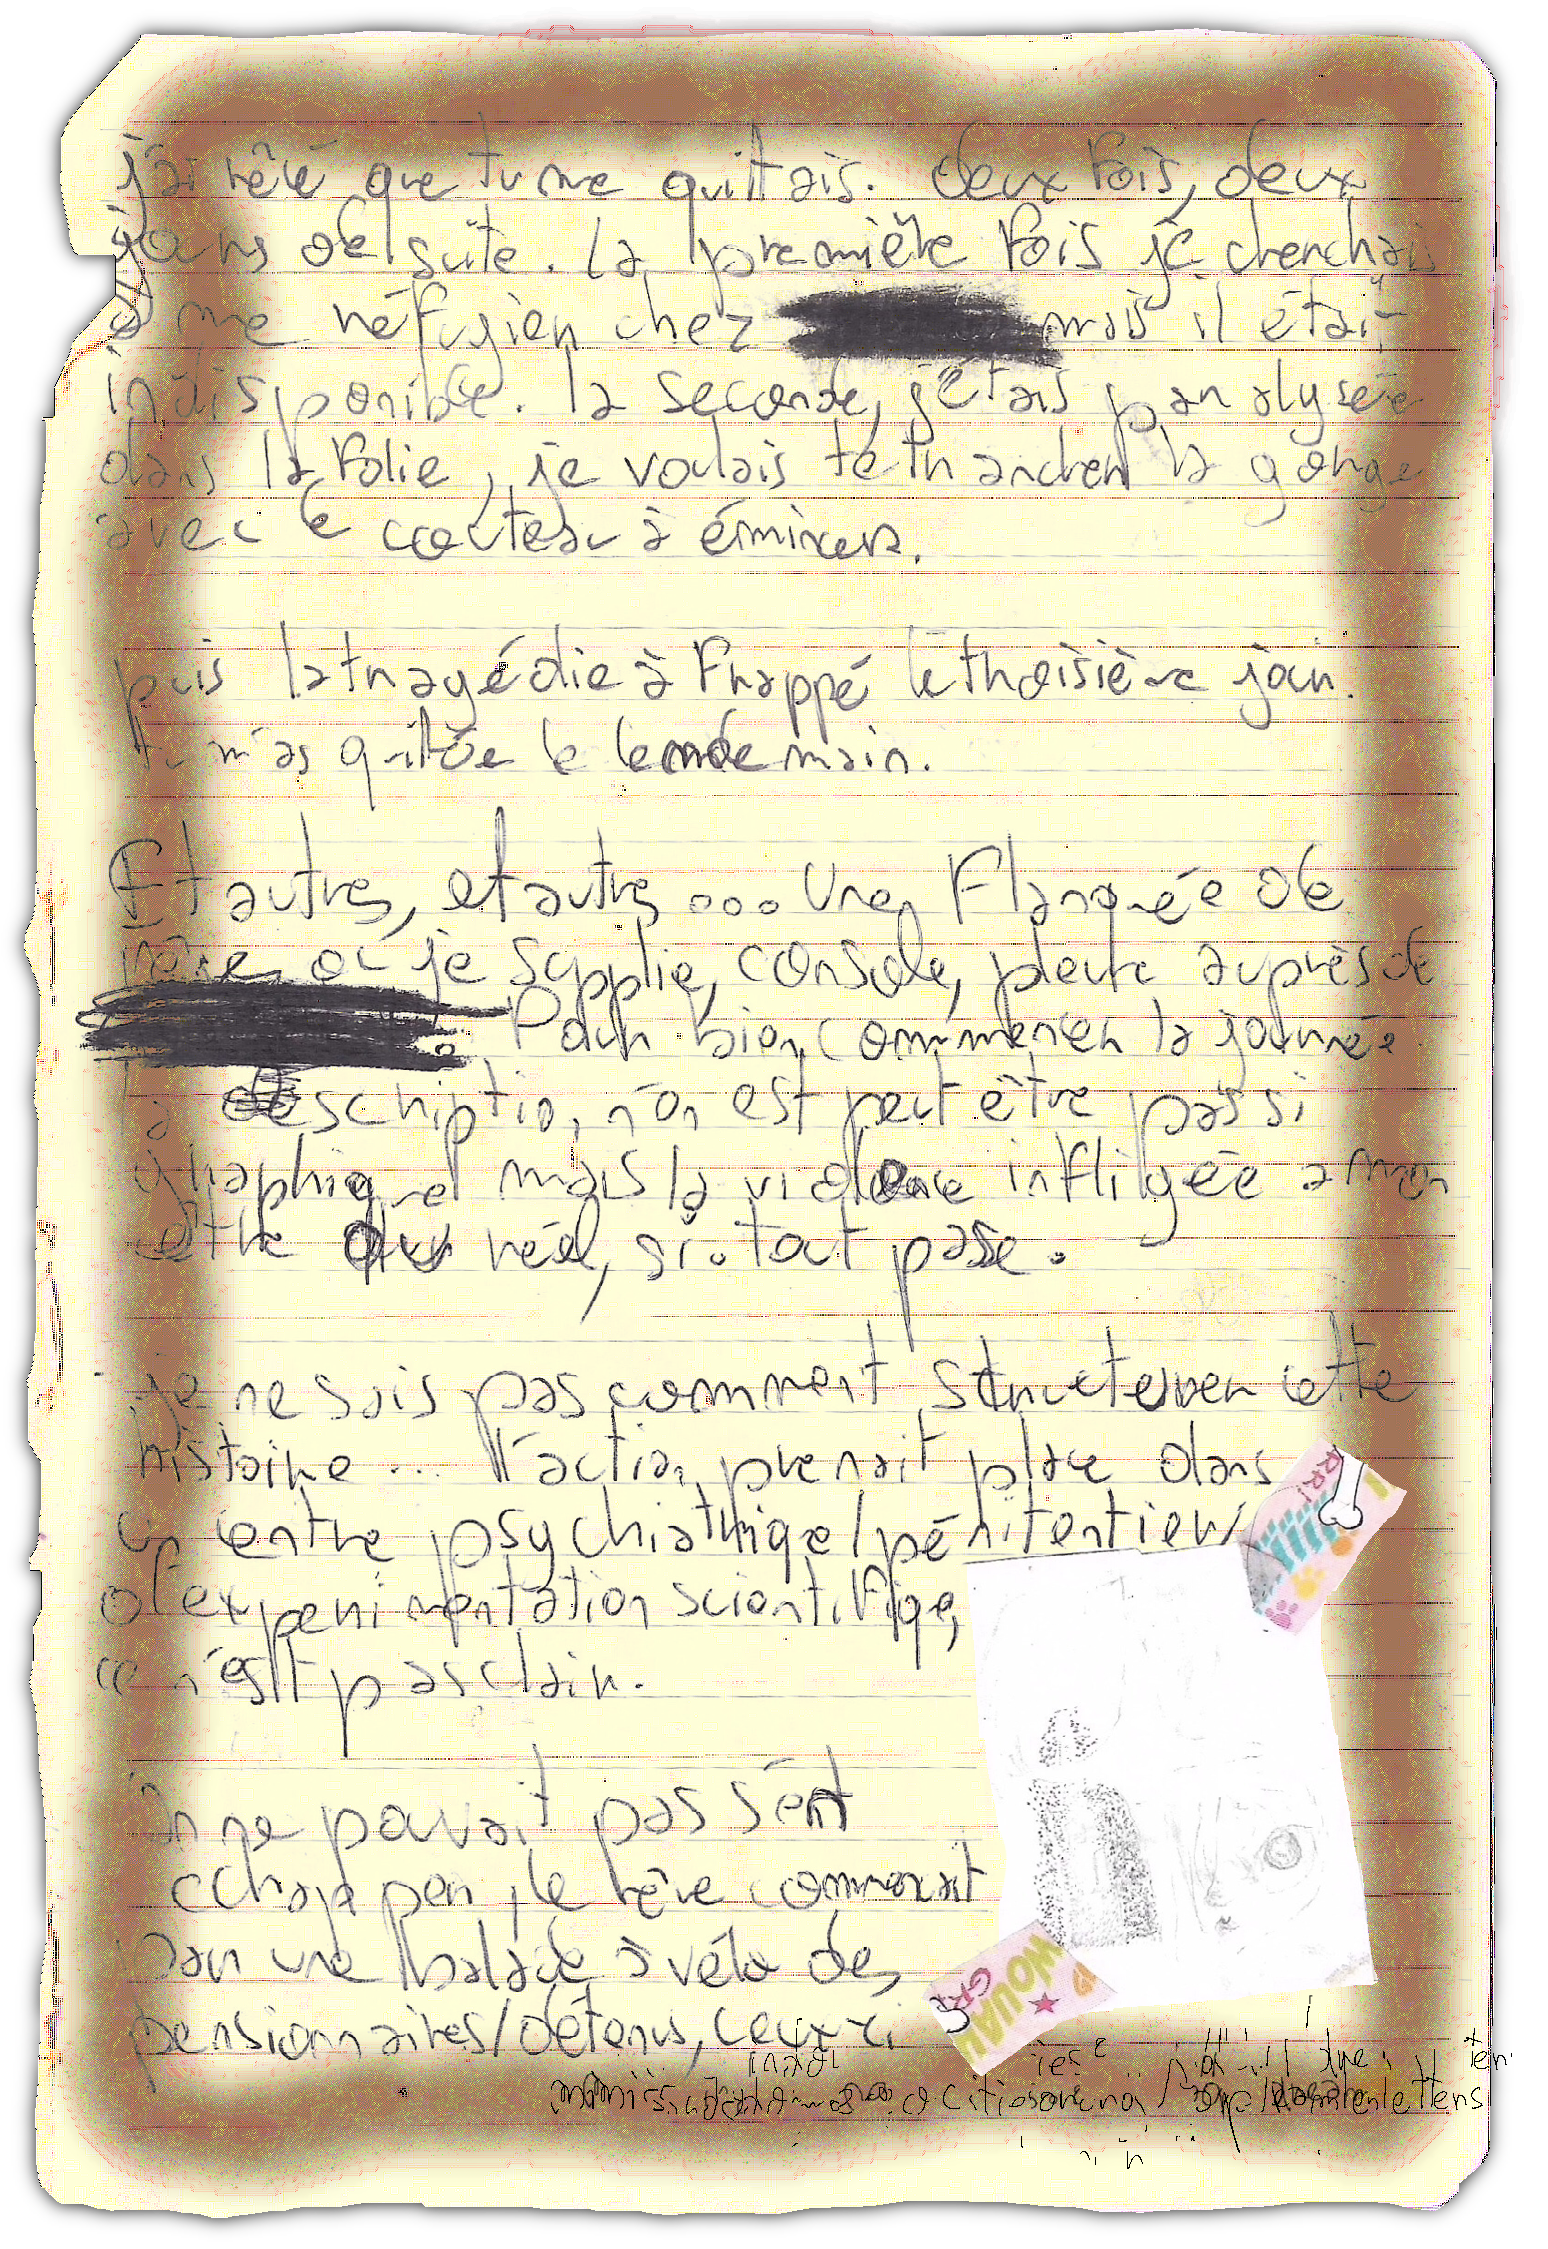 j'ai rêvé que tu me quittais. deux fois, deux
jours de suite. la première fois je cherchais
à me réfugier chez mais il était
indisponible. la seconde, j'étais paralysée
dans la folie, je voulais te trancher la gorge
avec le couteau à émincer.
puis la tragédie à frappé le troisième jour.
tu m'as quittée le lendemain.
Et autres, et autres... Une flanquée de
rêves où je supplie, console, pleure auprès de
. Pour bien commencer la journée
la description n'en est peut être pas si
graphique mais la violence infligée a mon
être réel, si. tout passe.
je ne sais pas comment structurer cette
histoire... l'action prenait place dans
un centre psychiatrique/pénitentier/
d'experimentation scientifique,
ce n'est pas clair.
on ne pouvait pas s'en
échapper, le rêve commençait
par une balade à vélo des
pensionnaires/détenus, ceux ci
RR!
WOUAH
GRR